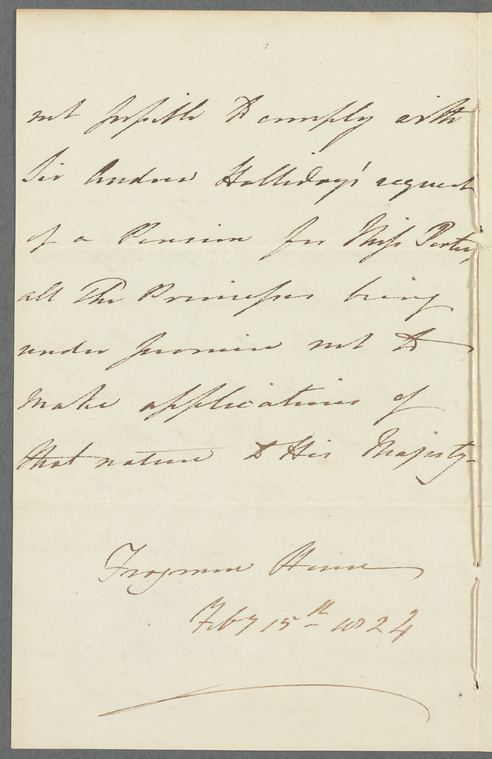 not possible to comply with
Sir Andrew Halliday's request
of a Pension for Miss Porter,
all The Princesses being
under promise not to
make applications of
that nature to His Majesty—
Frogmore House
Feby 15th 1824